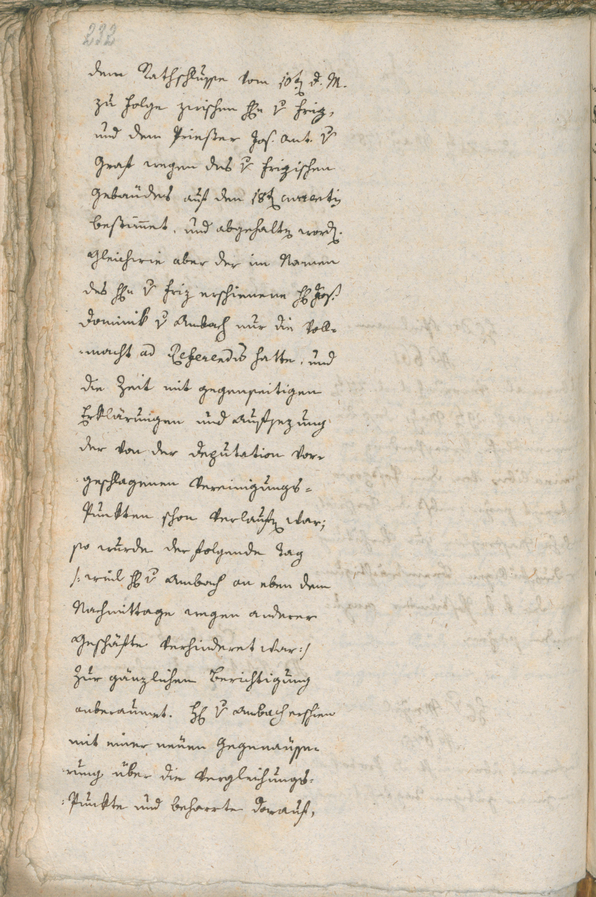 232
dem Rathschlusse vom 10t d. M.
zu Folge zwischen Hn v Friz,
und dem Priester Jos. Ant. v
Graff wegen des v Frizischen
Gebäudes auf den 18t currentis
bestimmet, und abgehalten word.
Gleichwie aber der im Namen
des Hn v Friz erschienene H Jos.
Dominik v Ambach nur die Voll-
macht ad Referendis hatte, und
die Zeit mit gegenseitigen
Erklärungen und Aufsezung
der von der Deputation vor-
geschlagenen Vereinigungs-
Punkten schon verlaufen war;
so wurde der folgende Tag
/: weil H v Ambach an eben dem
Nachmittage wegen anderer
Geschäfte verhinderet war :/
zur gänzlichen Berichtigung
anberaumet. H v Ambach erschien
mit einer neuen Gegenäusse-
rung über die Vergleichungs-
Punkte und beharrte darauf,